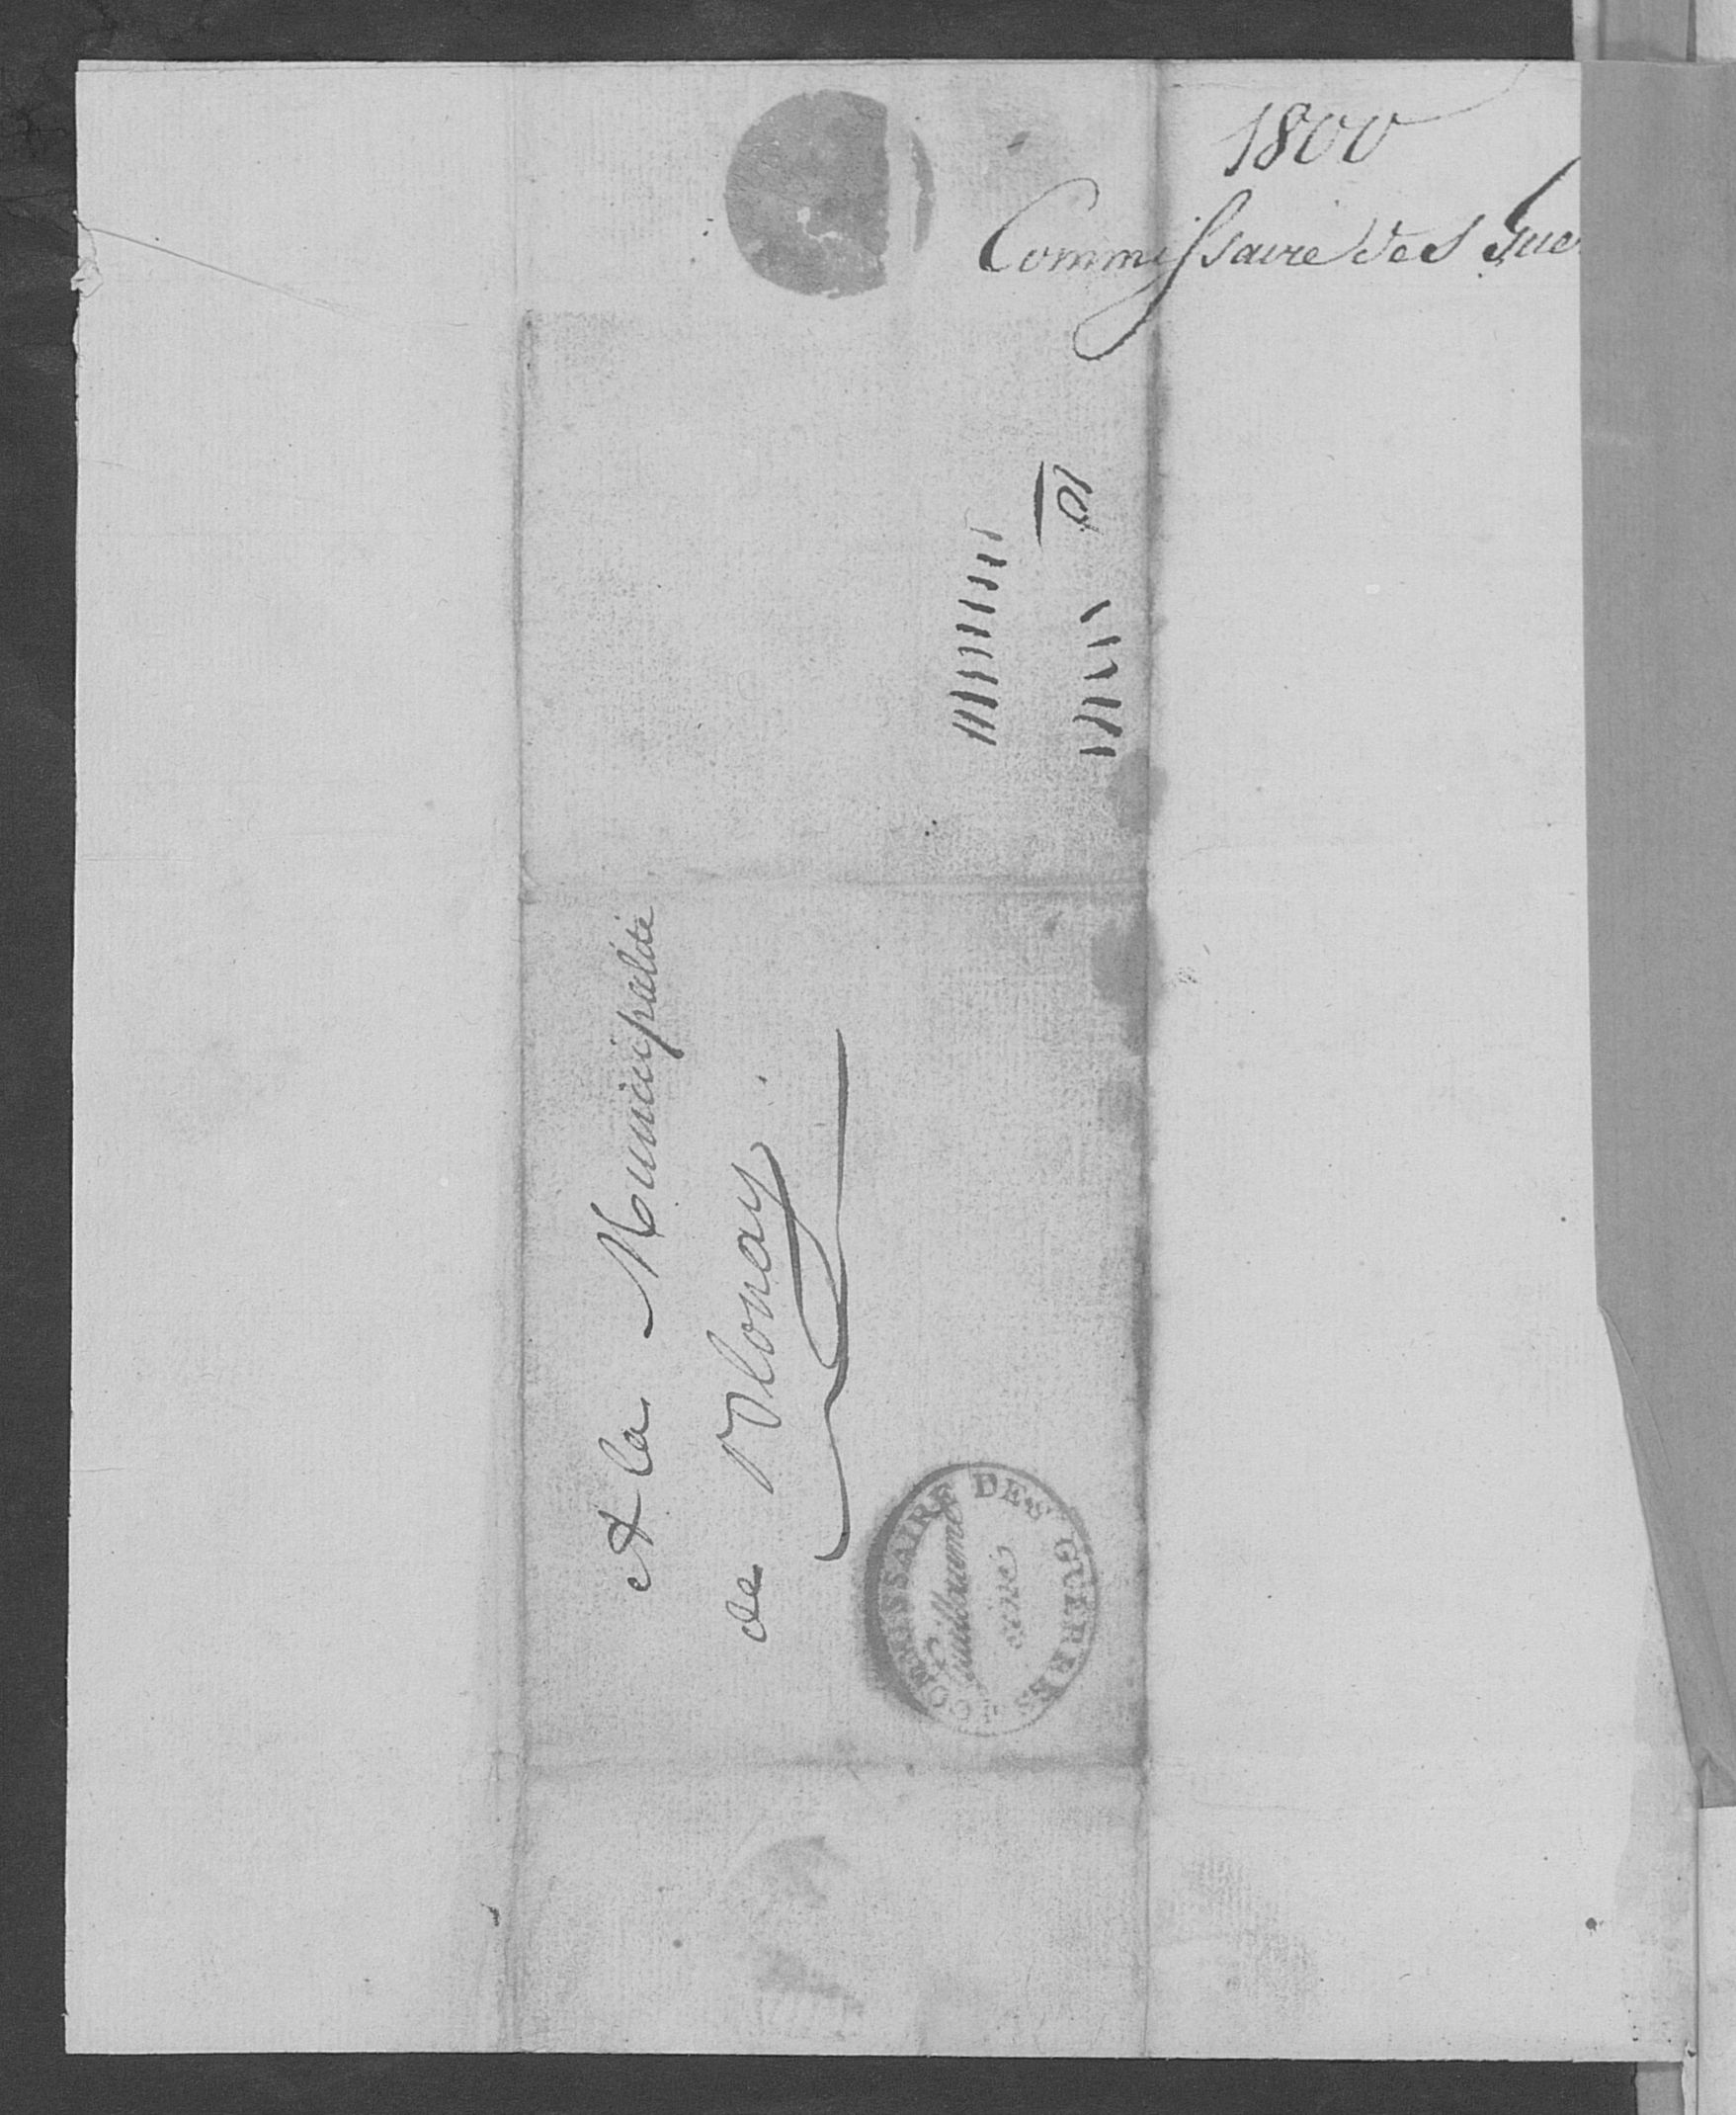 1800
Commissaire des Gue
A la Municipalité
de Blonay.
COMMISSAIRE DES GUERRES
Guillaume
ainé